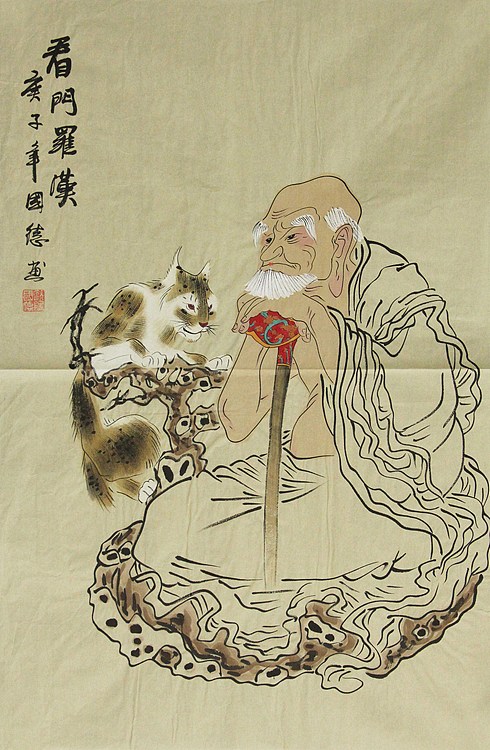 看門羅漢
庚子年國德畫